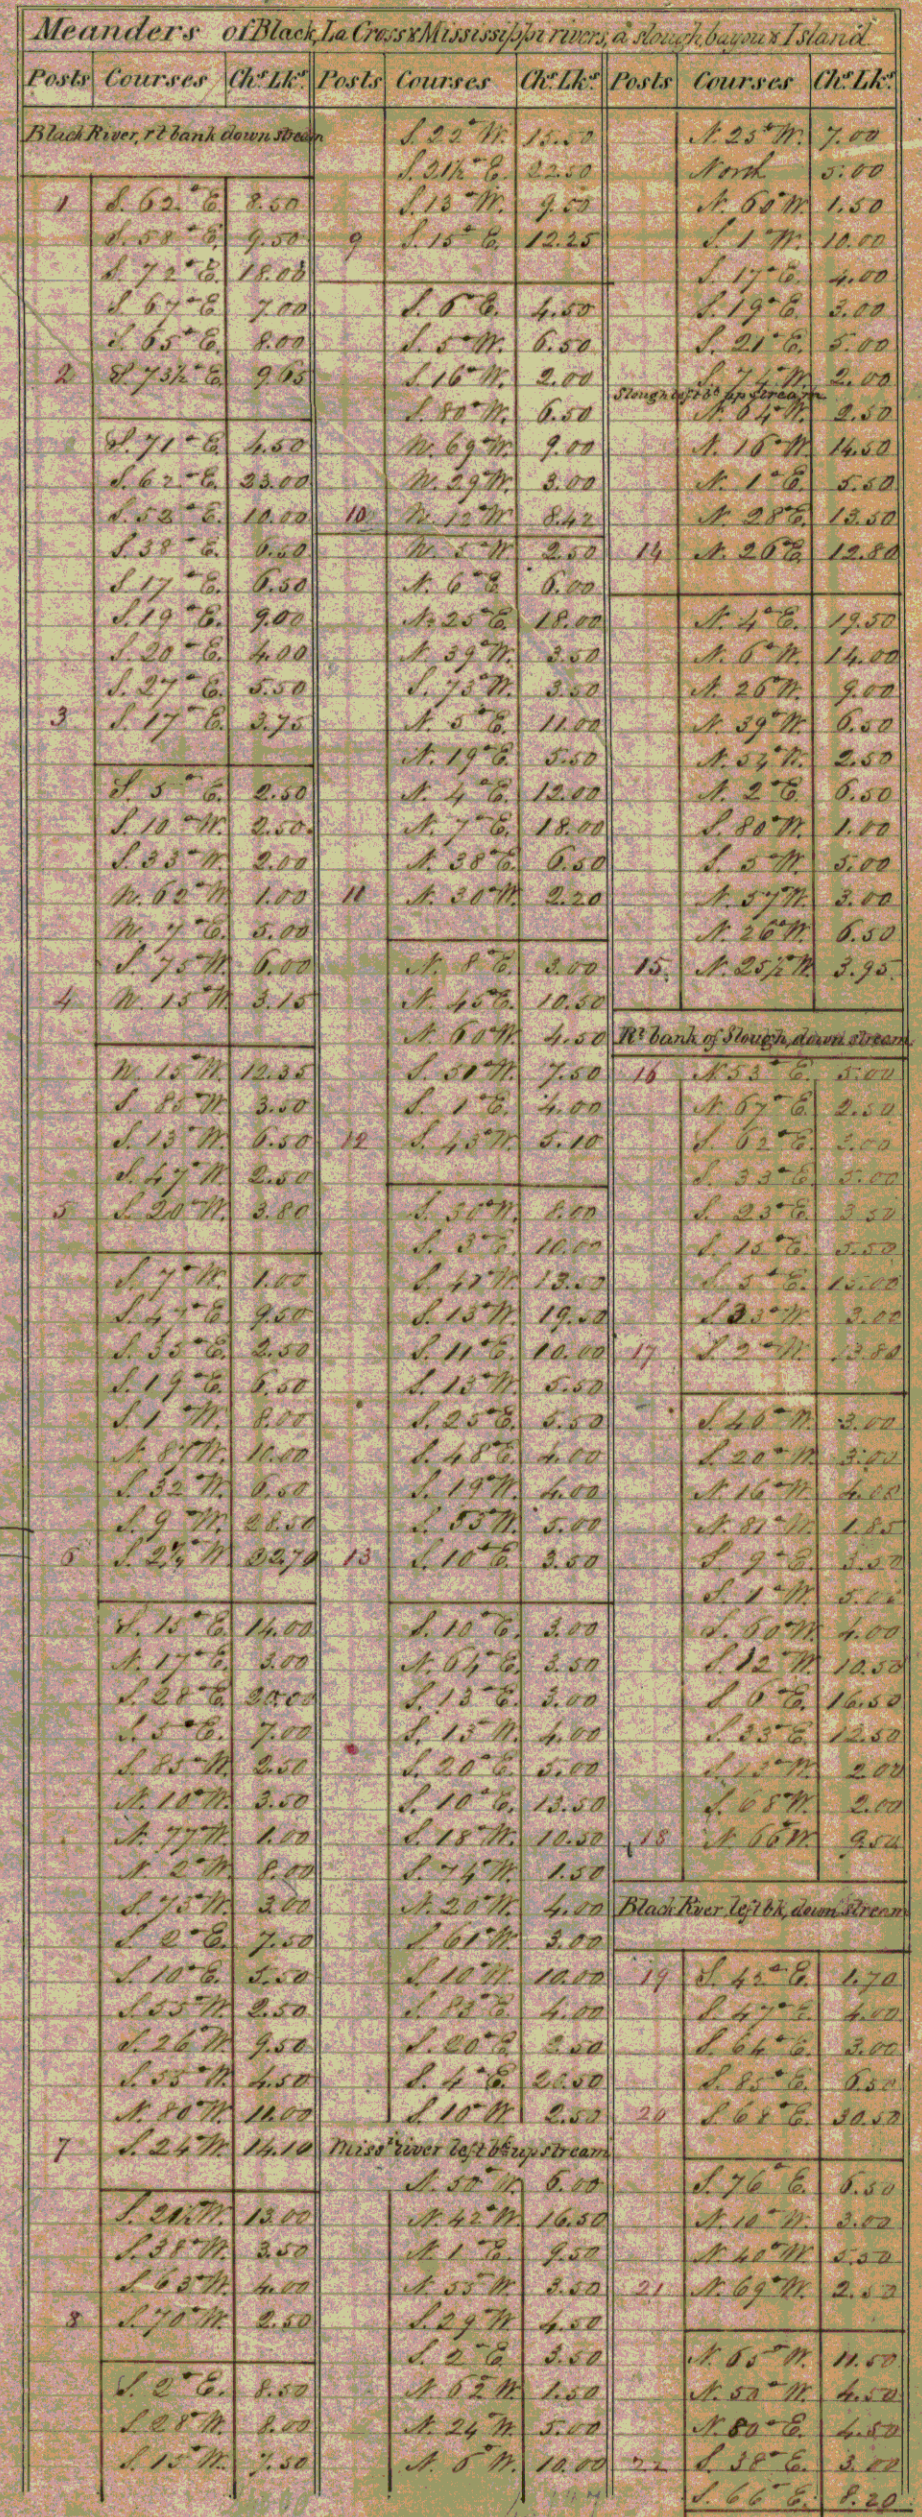 Meanders of Black, La Cross & Mississippi rivers, a slough bayou & Island
Posts Courses Chs. Lks.
Black River, rt bank down stream
1 S. 62° E. 8.50
S. 58° E. 9.50
S. 72° E. 18.00
S. 67° E. 7.00
S. 65° E. 8.00
2 S. 73½° E. 9.65
S. 71° E. 4.50
S. 62° E. 23.00
S. 52° E. 10.00
S. 38° E. 6.50
S. 17° E. 6.50
S. 19° E. 9.00
S. 20° E. 4.00
S. 27° E. 5.50
3 S. 17° E. 3.75
S. 5° E. 2.50
S. 10° W. 2.50
S. 33° W. 2.00
N. 62° W. 1.00
N. 7° E. 5.00
S. 75° W. 6.00
4 N. 15° W. 3.15
N. 15° W. 12.35
S. 85° W. 3.50
S. 13° W. 6.50
S. 47° W. 2.50
5 S. 20° W. 3.80
S. 7° W. 1.00
S. 47° E. 9.50
S. 35° E. 2.50
S. 19° E. 6.50
S. 1° W. 8.00
N. 87° W. 10.00
S. 32° W. 6.50
S. 9° W. 28.50
6 S. 2¾° W. 22.79
S. 15° E. 14.00
N. 17° E. 3.00
S. 28° E. 20.00
S. 5° E. 7.00
S. 85° W. 2.50
N. 10° W. 3.50
N. 77° W. 1.00
N. 2° W. 8.00
S. 75° W. 3.00
S. 2° E. 7.50
S. 10° E. 5.50
S. 55° W. 2.50
S. 26° W. 9.50
S. 55° W. 4.50
N. 80° W. 11.00
7 S. 24° W. 14.10
S. 21½° W. 13.00
S. 38° W. 3.50
S. 63° W. 4.00
8 S. 70° W. 2.50
S. 2° E. 8.50
S. 28° W. 8.00
S. 15° W. 7.50
Posts Courses Chs. Lks.
S. 22° W. 15.50
S. 21½° E. 22.50
S. 13° W. 9.50
9 S. 15° E. 12.25
S. 6° E. 4.50
S. 5° W. 6.50
S. 16° W. 2.00
S. 80° W. 6.50
N. 69° W. 9.00
N. 29° W. 3.00
10 N. 12° W. 8.42
N. W. 2.50
N. 6° E. 6.00
N. 25° E. 18.00
N. 39° W. 3.50
S. 75° W. 3.50
N. 5° E. 11.00
N. 19° E. 5.50
N. 4° E. 12.00
N. 7° E. 18.00
N. 38° E. 6.50
11 N. 30° W. 2.20
N. 8° E. 3.00
N. 45° E. 10.50
N. 60° W. 4.50
S. 50° W. 7.50
S. 1° E. 4.00
12 S. 43° W. 5.10
S. 50° W. 8.00
S. 3° E. 10.00
S. W. 13.50
S. 13° W. 19.50
S. 11° E. 10.00
S. 13° W. 5.50
S. 25° E. 5.50
S. 48° E. 4.00
S. 19° W. 4.00
S. 55° W. 5.00
13 S. 10° E. 3.50
S. 10° E. 3.00
N. 64° E. 3.50
S. 13° E. 3.00
S. 15° W. 4.00
S. 20° E. 5.00
S. 10° E. 13.50
S. 18° W. 10.50
S. 74° W. 1.50
N. 20° W. 4.00
S. 61° W. 3.00
S. 10° W. 10.00
S. 85° E. 4.00
S. 20° E. 2.50
S. 4° E. 20.50
S. 10° W. 2.50
Miss. river left bk up stream
N. 50° W. 6.00
N. 42° W. 16.50
N. 1° E. 9.50
N. 55° W. 3.50
S. 29° W. 4.50
S. 2° E. 3.50
N. 62° W. 1.50
N. 24° W. 5.00
N. 6° W. 10.00
Posts Courses Chs. Lks.
N. 25° W. 7.00
North 5.00
N. 60° W. 1.50
S. 1° W. 10.00
S. 17° E. 4.00
S. 19° E. 3.00
S. 21° E. 5.00
S. 74° W. 2.00
Slough left bk up stream
N. 64° W. 2.50
N. 16° W. 14.50
N. 1° E. 5.50
N. 28° E. 13.50
14 N. 26° E. 12.80
N. 4° E. 19.50
N. 6° W. 14.00
N. 26° W. 9.00
N. 39° W. 6.50
N. 34° W. 2.50
N. 2° E. 6.50
S. 80° W. 1.00
S. 5° W. 5.00
N. 57° W. 3.00
N. 26° W. 6.50
15. N. 25½° W. 3.95
Rt bank of Slough, down stream
16 N. 53° E. 5.00
N. 67° E. 2.50
S. 62° E. 3.00
S. 33° E. 5.00
S. 23° E. 3.50
S. 15° E. 5.50
S. 5° E. 15.00
S. 23° W. 3.00
17 S. 2° W. 13.80
S. 46° W. 3.00
S. 20° W. 3.00
N. 16° W. 4.00
N. 81° W. 1.85
S. 9° E. 3.50
S. 1° W. 5.00
S. 60° W. 4.00
S. 12° W. 10.50
S. 6° E. 16.50
S. 33° E. 12.50
S. 13° W. 2.00
S. 68° W. 2.00
18 N. 66° W. 9.50
Black River left bk, down stream
19 S. 42° E. 1.70
S. 47° E. 4.00
S. 64° E. 3.00
S. 85° E. 6.50
20 S. 68° E. 30.50
S. 76° E. 6.50
N. 10° W. 3.00
N. 40° W. 5.50
21 N. 69° W. 2.50
N. 65° W. 11.50
N. 50° W. 4.50
N. 80° E. 4.50
22 S. 38° E. 3.00
S. 66° E. 8.20